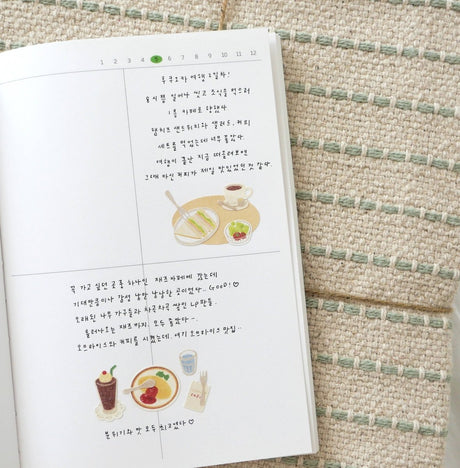 1 2 3 4 5 6 7 8 9 10 11 12
후쿠오카 여행 2일차!
8시쯤 일어나 씻고 조식을 먹으러
1층 카페로 향했다
햄치즈 샌드위치와 샐러드, 커피
세트를 먹었는데 너무 좋았다
여행이 끝난 지금 떠올려보면
그때 마신 커피가 제일 맛있었던 것 같다
꼭 가고 싶던 곳 중 하나인 재즈카페에 갔는데
기대만큼이나 감성 낭낭 낭낭한 공이었다.. Good!♡
오래된 나무 가구들과 차곡차곡 쌓인 LP판들..
흘러나오는 재즈까지, 모두 좋았다ㅡ.
오므라이스와 커피를 시켰는데, 여기 오므라이스 맛집..
분위기와 맛 모두 최고였다♡